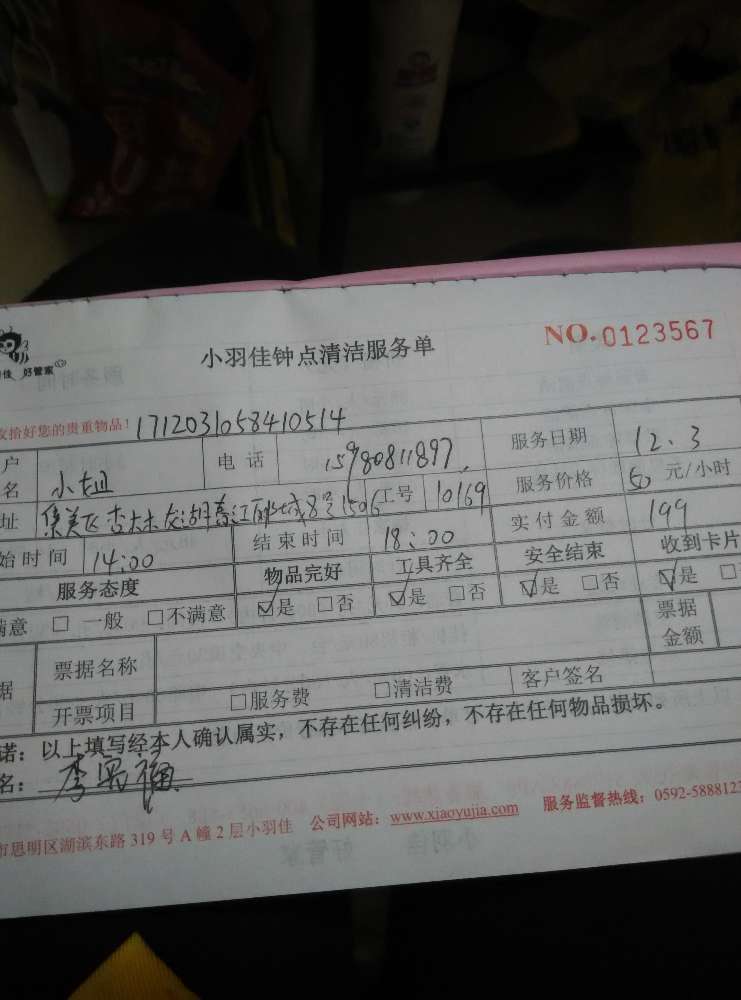 小羽佳钟点清洁服务单
NO. 0123567
佳 好管家
收拾好您的贵重物品! 1712031058410514
户名 小姐 电话 15980811897 服务日期 12.3
址 集美区杏林 8号1506 工号 10169 服务价格 50 元/小时
始时间 14:00 结束时间 18:00 实付金额 199
服务态度 物品完好 工具齐全 安全结束 收到卡片
满意 □ 一般 □不满意 ☑是 □否 ☑是 □否 ☑是 □否 ☑是 □
据 票据名称 票据金额
开票项目 □服务费 □清洁费 客户签名
诺：以上填写经本人确认属实，不存在任何纠纷，不存在任何物品损坏。
名：
市思明区湖滨东路 319 号 A 幢 2 层小羽佳 公司网站：www.xiaoyujia.com 服务监督热线：0592-5888123